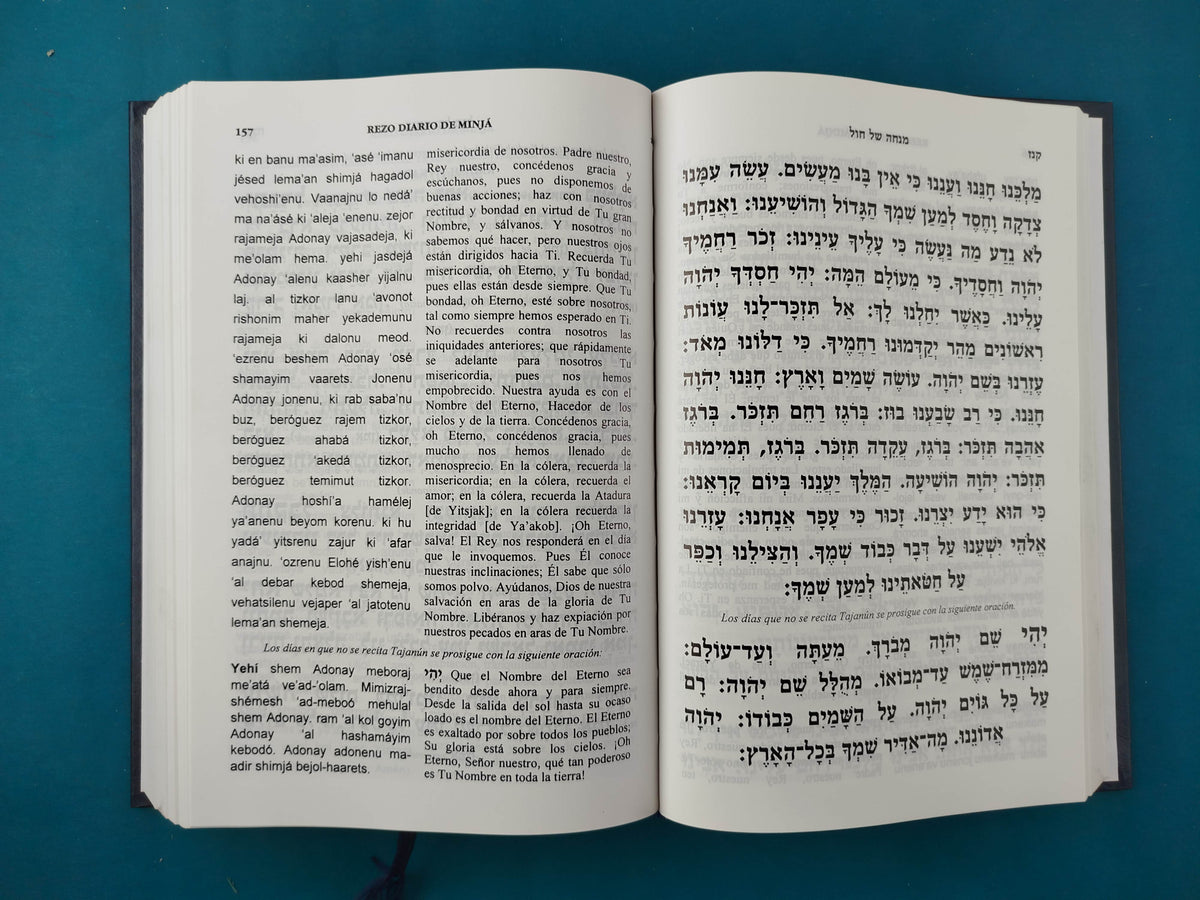 157
REZO DIARIO DE MINJÁ
ki en banu ma'asim, 'asé 'imanu
jésed lema'an shimjá hagadol
vehoshi'enu. Vaanajnu lo nedá'
ma na'ásé ki 'aleja 'enenu. zejor
rajameja Adonay vajasadeja, ki
me'olam hema. yehi jasdejá
Adonay 'alenu kaasher yijalnu
laj. al tizkor lanu 'avonot
rishonim maher yekademunu
rajameja ki dalonu meod.
'ezrenu beshem Adonay 'osé
shamayim vaarets. Jonenu
Adonay jonenu, ki rab saba'nu
buz, beróguez rajem tizkor,
beróguez ahabá tizkor,
beróguez 'akedá tizkor,
beróguez temimut tizkor.
Adonay hoshí'a hamélej
ya'anenu beyom korenu. ki hu
yadá' yitsrenu zajur ki 'afar
anajnu. 'ozrenu Elohé yish'enu
'al debar kebod shemeja,
vehatsilenu vejaper 'al jatotenu
lema'an shemeja.
misericordia de nosotros. Padre nuestro,
Rey nuestro, concédenos gracia y
escúchanos, pues no disponemos de
buenas acciones; haz con nosotros
rectitud y bondad en virtud de Tu gran
Nombre, y sálvanos. Y nosotros no
sabemos qué hacer, pero nuestros ojos
están dirigidos hacia Ti. Recuerda Tu
misericordia, oh Eterno, y Tu bondad,
pues ellas están desde siempre. Que Tu
bondad, oh Eterno, esté sobre nosotros,
tal como siempre hemos esperado en Ti.
No recuerdes contra nosotros las
iniquidades anteriores; que rápidamente
se adelante para nosotros Tu
misericordia, pues nos hemos
empobrecido. Nuestra ayuda es con el
Nombre del Eterno, Hacedor de los
cielos y de la tierra. Concédenos gracia,
oh Eterno, concédenos gracia, pues
mucho nos hemos llenado de
menosprecio. En la cólera, recuerda la
misericordia; en la cólera, recuerda el
amor; en la cólera, recuerda la Atadura
[de Yitsjak]; en la cólera recuerda la
integridad [de Ya'akob]. ¡Oh Eterno,
salva! El Rey nos responderá en el día
que le invoquemos. Pues Él conoce
nuestras inclinaciones; Él sabe que sólo
somos polvo. Ayúdanos, Dios de nuestra
salvación en aras de la gloria de Tu
Nombre. Libéranos y haz expiación por
nuestros pecados en aras de Tu Nombre.
Los días en que no se recita Tajanún se prosigue con la siguiente oración:
Yehí shem Adonay meboraj
me'atá ve'ad-'olam. Mimizraj-
shémesh 'ad-meboó mehulal
shem Adonay. ram 'al kol goyim
Adonay 'al hashamáyim
kebodó. Adonay adonenu ma-
adir shimjá bejol-haarets.
יְהִי Que el Nombre del Eterno sea
bendito desde ahora y para siempre.
Desde la salida del sol hasta su ocaso
loado es el nombre del Eterno. El Eterno
es exaltado por sobre todos los pueblos;
Su gloria está sobre los cielos. ¡Oh
Eterno, Señor nuestro, qué tan poderoso
es Tu Nombre en toda la tierra!
מנחה של חול
קנז
מַלְכֵּנוּ חָנֵּנוּ וַעֲנֵנוּ כִּי אֵין בָּנוּ מַעֲשִׂים. עֲשֵׂה עִמָּנוּ
צְדָקָה וָחֶסֶד לְמַעַן שִׁמְךָ הַגָּדוֹל וְהוֹשִׁיעֵנוּ: וַאֲנַחְנוּ
לֹא נֵדַע מַה נַּעֲשֶׂה כִּי עָלֶיךָ עֵינֵינוּ: זְכֹר רַחֲמֶיךָ
יְהֹוָה וַחֲסָדֶיךָ. כִּי מֵעוֹלָם הֵמָּה: יְהִי חַסְדְּךָ יְהֹוָה
עָלֵינוּ. כַּאֲשֶׁר יִחַלְנוּ לָךְ: אַל תִּזְכָּר־לָנוּ עֲוֹנוֹת
רִאשׁוֹנִים מַהֵר יְקַדְּמוּנוּ רַחֲמֶיךָ. כִּי דַלּוֹנוּ מְאֹד:
עֶזְרֵנוּ בְּשֵׁם יְהֹוָה. עוֹשֵׂה שָׁמַיִם וָאָרֶץ: חָנֵּנוּ יְהֹוָה
חָנֵּנוּ. כִּי רַב שָׂבַעְנוּ בוּז: בְּרֹגֶז רַחֵם תִּזְכֹּר. בְּרֹגֶז
אַהֲבָה תִּזְכֹּר: בְּרֹגֶז, עֲקֵדָה תִּזְכֹּר. בְּרֹגֶז, תְּמִימוּת
תִּזְכֹּר: יְהֹוָה הוֹשִׁיעָה. הַמֶּלֶךְ יַעֲנֵנוּ בְיוֹם קָרְאֵנוּ:
כִּי הוּא יָדַע יִצְרֵנוּ. זָכוּר כִּי עָפָר אֲנָחְנוּ: עָזְרֵנוּ
אֱלֹהֵי יִשְׁעֵנוּ עַל דְּבַר כְּבוֹד שְׁמֶךָ. וְהַצִּילֵנוּ וְכַפֵּר
עַל חַטֹּאתֵינוּ לְמַעַן שְׁמֶךָ:
Los días que no se recita Tajanún se prosigue con la siguiente oración.
יְהִי שֵׁם יְהֹוָה מְבֹרָךְ. מֵעַתָּה וְעַד־עוֹלָם:
מִמִּזְרַח־שֶׁמֶשׁ עַד־מְבוֹאוֹ. מְהֻלָּל שֵׁם יְהֹוָה: רָם
עַל כָּל גּוֹיִם יְהֹוָה. עַל הַשָּׁמַיִם כְּבוֹדוֹ: יְהֹוָה
אֲדוֹנֵנוּ. מָה־אַדִּיר שִׁמְךָ בְּכָל־הָאָרֶץ: